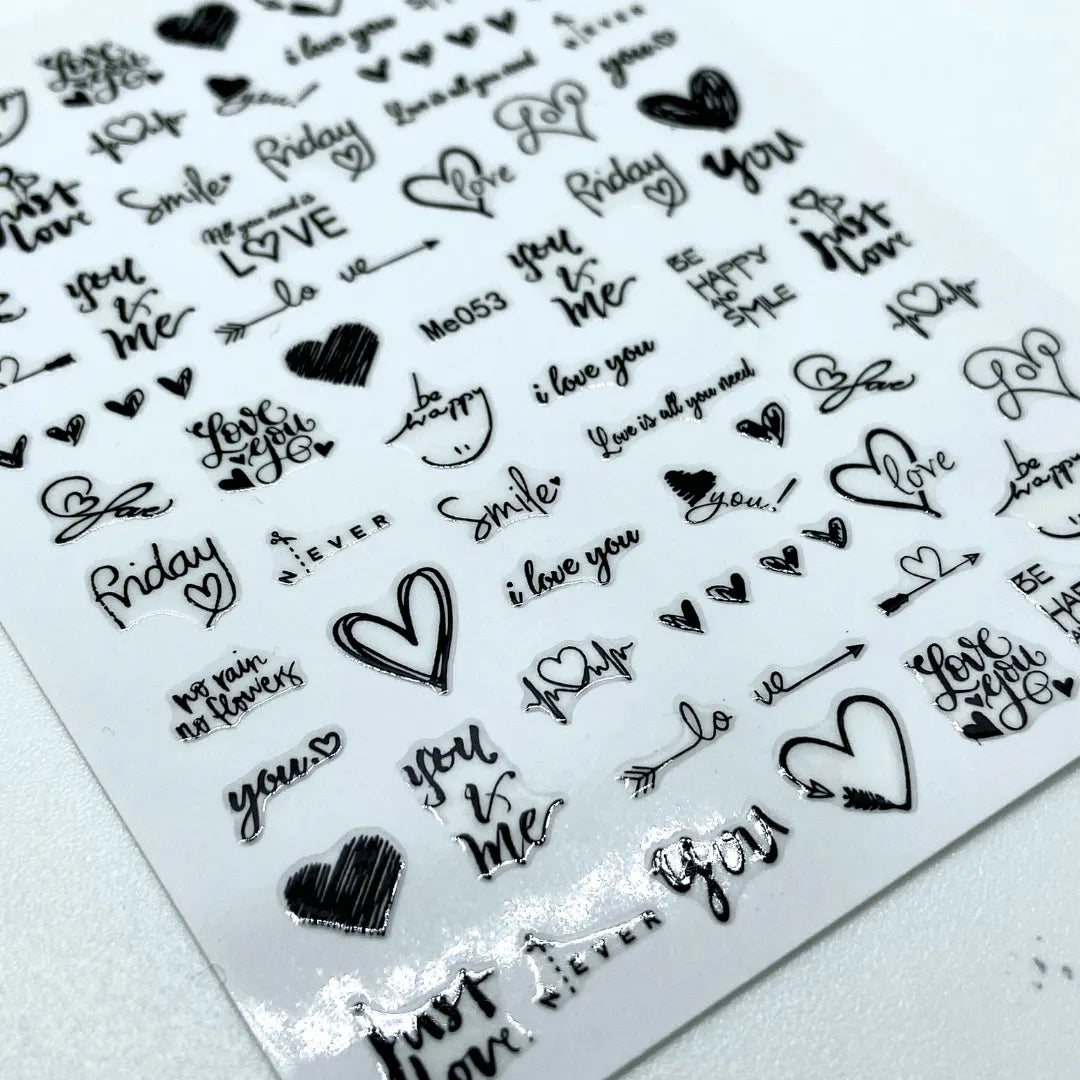 you
Love
you
i love you
NEVER
you
you!
Love is all you need
Love
friday
Smile
love
friday
you
Just
love
No you need is
LOVE
i just
love
you
&
me
lo ve
Me053
you
&
me
BE
HAPPY
AND
SMILE
i love you
be
happy
Love
you
Love is all you need
love
Love
love
Smile
you!
love
be
happy
friday
NEVER
i love you
BE
HAP
no rain
no flowers
lo ve
Love
you
you
you
&
me
you
NEVER
Just
Love